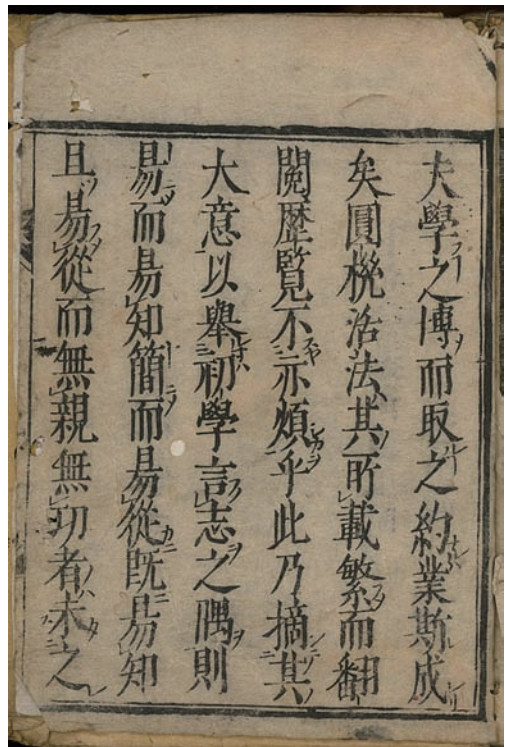 夫學之博而取之約業斯成
矣圓機活法其所載繁而翻
閲歷覽不亦煩乎此乃摘其
大意以舉初學言志之隅則
易而易知簡而易從既易知
且易從而無親無功者未之